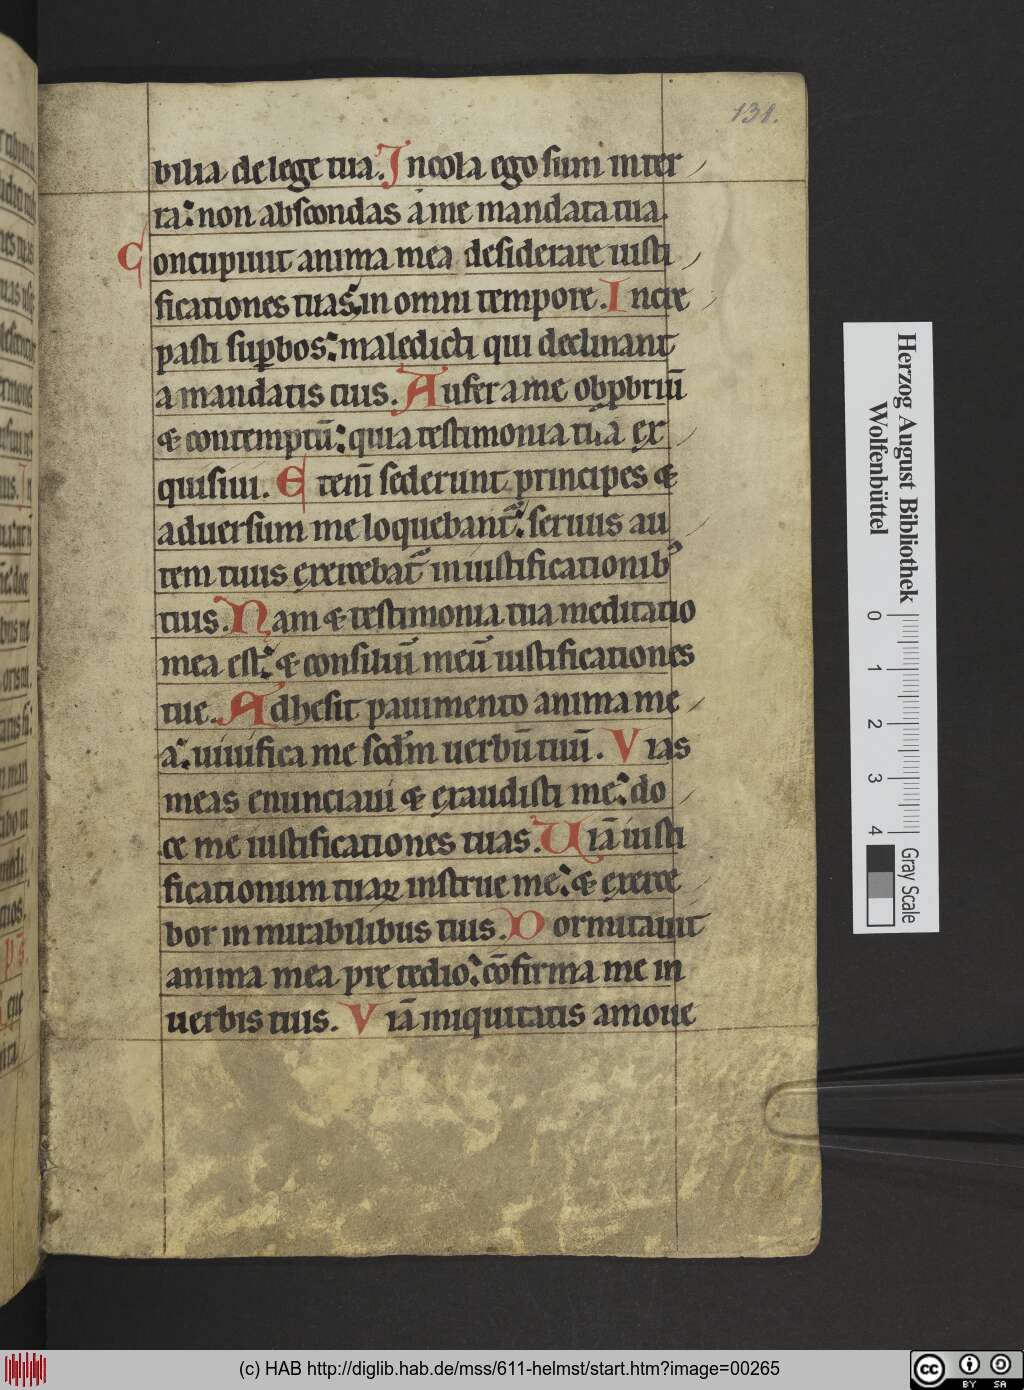 131.
bilia de lege tua. Incola ego sum in ter
ra: non abscondas a me mandata tua.
Concupiuit anima mea desiderare iusti
ficationes tuas, in omni tempore. Incre
pasti suꝑbos: maledicti qui declinant
a mandatis tuis. Aufer a me obꝓbriū
& contemptū: quia testimonia tua ex
quisiui. Etenī sederunt principes &
aduersum me loquebant᷑: seruus au
tem tuus exercebat᷑ in iustificationibꝰ
tuis. Nam & testimonia tua meditatio
mea est: & consiliū meū iustificationes
tue. Adhesit pauimento anima me
a: uiuifica me scd̄m uerbū tuū. Vias
meas enunciaui & exaudisti me: do
ce me iustificationes tuas. Uiā iusti
ficationum tuaꝝ instrue me: & exerce
bor in mirabilibus tuis. Dormitauit
anima mea pre tedio: cōfirma me in
uerbis tuis. Viā iniquitatis amoue
Herzog August Bibliothek
Wolfenbüttel
0 1 2 3 4
Gray Scale
(c) HAB http://diglib.hab.de/mss/611-helmst/start.htm?image=00265
cc BY SA